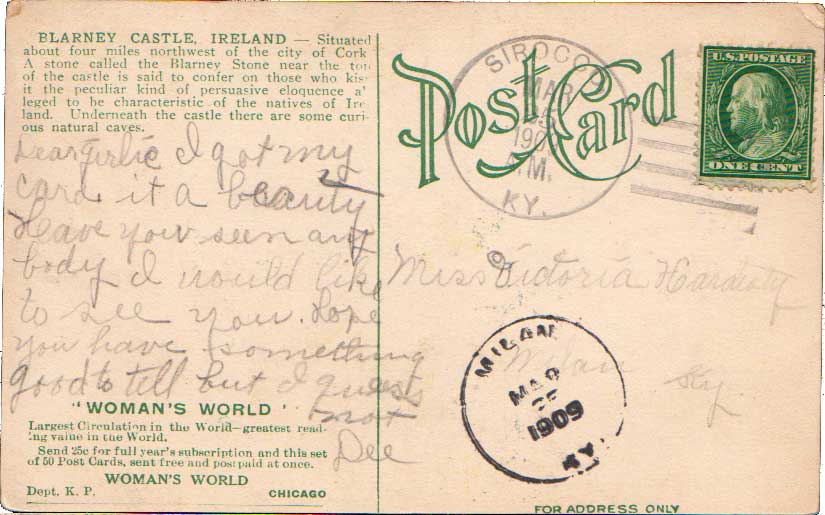 BLARNEY CASTLE, IRELAND — Situated
about four miles northwest of the city of Cork
A stone called the Blarney Stone near the top
of the castle is said to confer on those who kiss
it the peculiar kind of persuasive eloquence al
leged to be characteristic of the natives of Ire
land. Underneath the castle there are some curi-
ous natural caves.
Dear I got my
card it a beauty
Have you seen any
body I would like
to see you. Hope
you have something
good to tell but I guess
not
Dee
"WOMAN'S WORLD"
Largest Circulation in the World—greatest read-
ing value in the World.
Send 25c for full year's subscription and this set
of 50 Post Cards, sent free and postpaid at once.
WOMAN'S WORLD
Dept. K. P. CHICAGO
Post Card
SIROCCO
MAR
A.M.
KY.
U.S. POSTAGE
ONE CENT
Miss Victoria
Milan Ky.
MILAN
MAR
1909
KY.
FOR ADDRESS ONLY